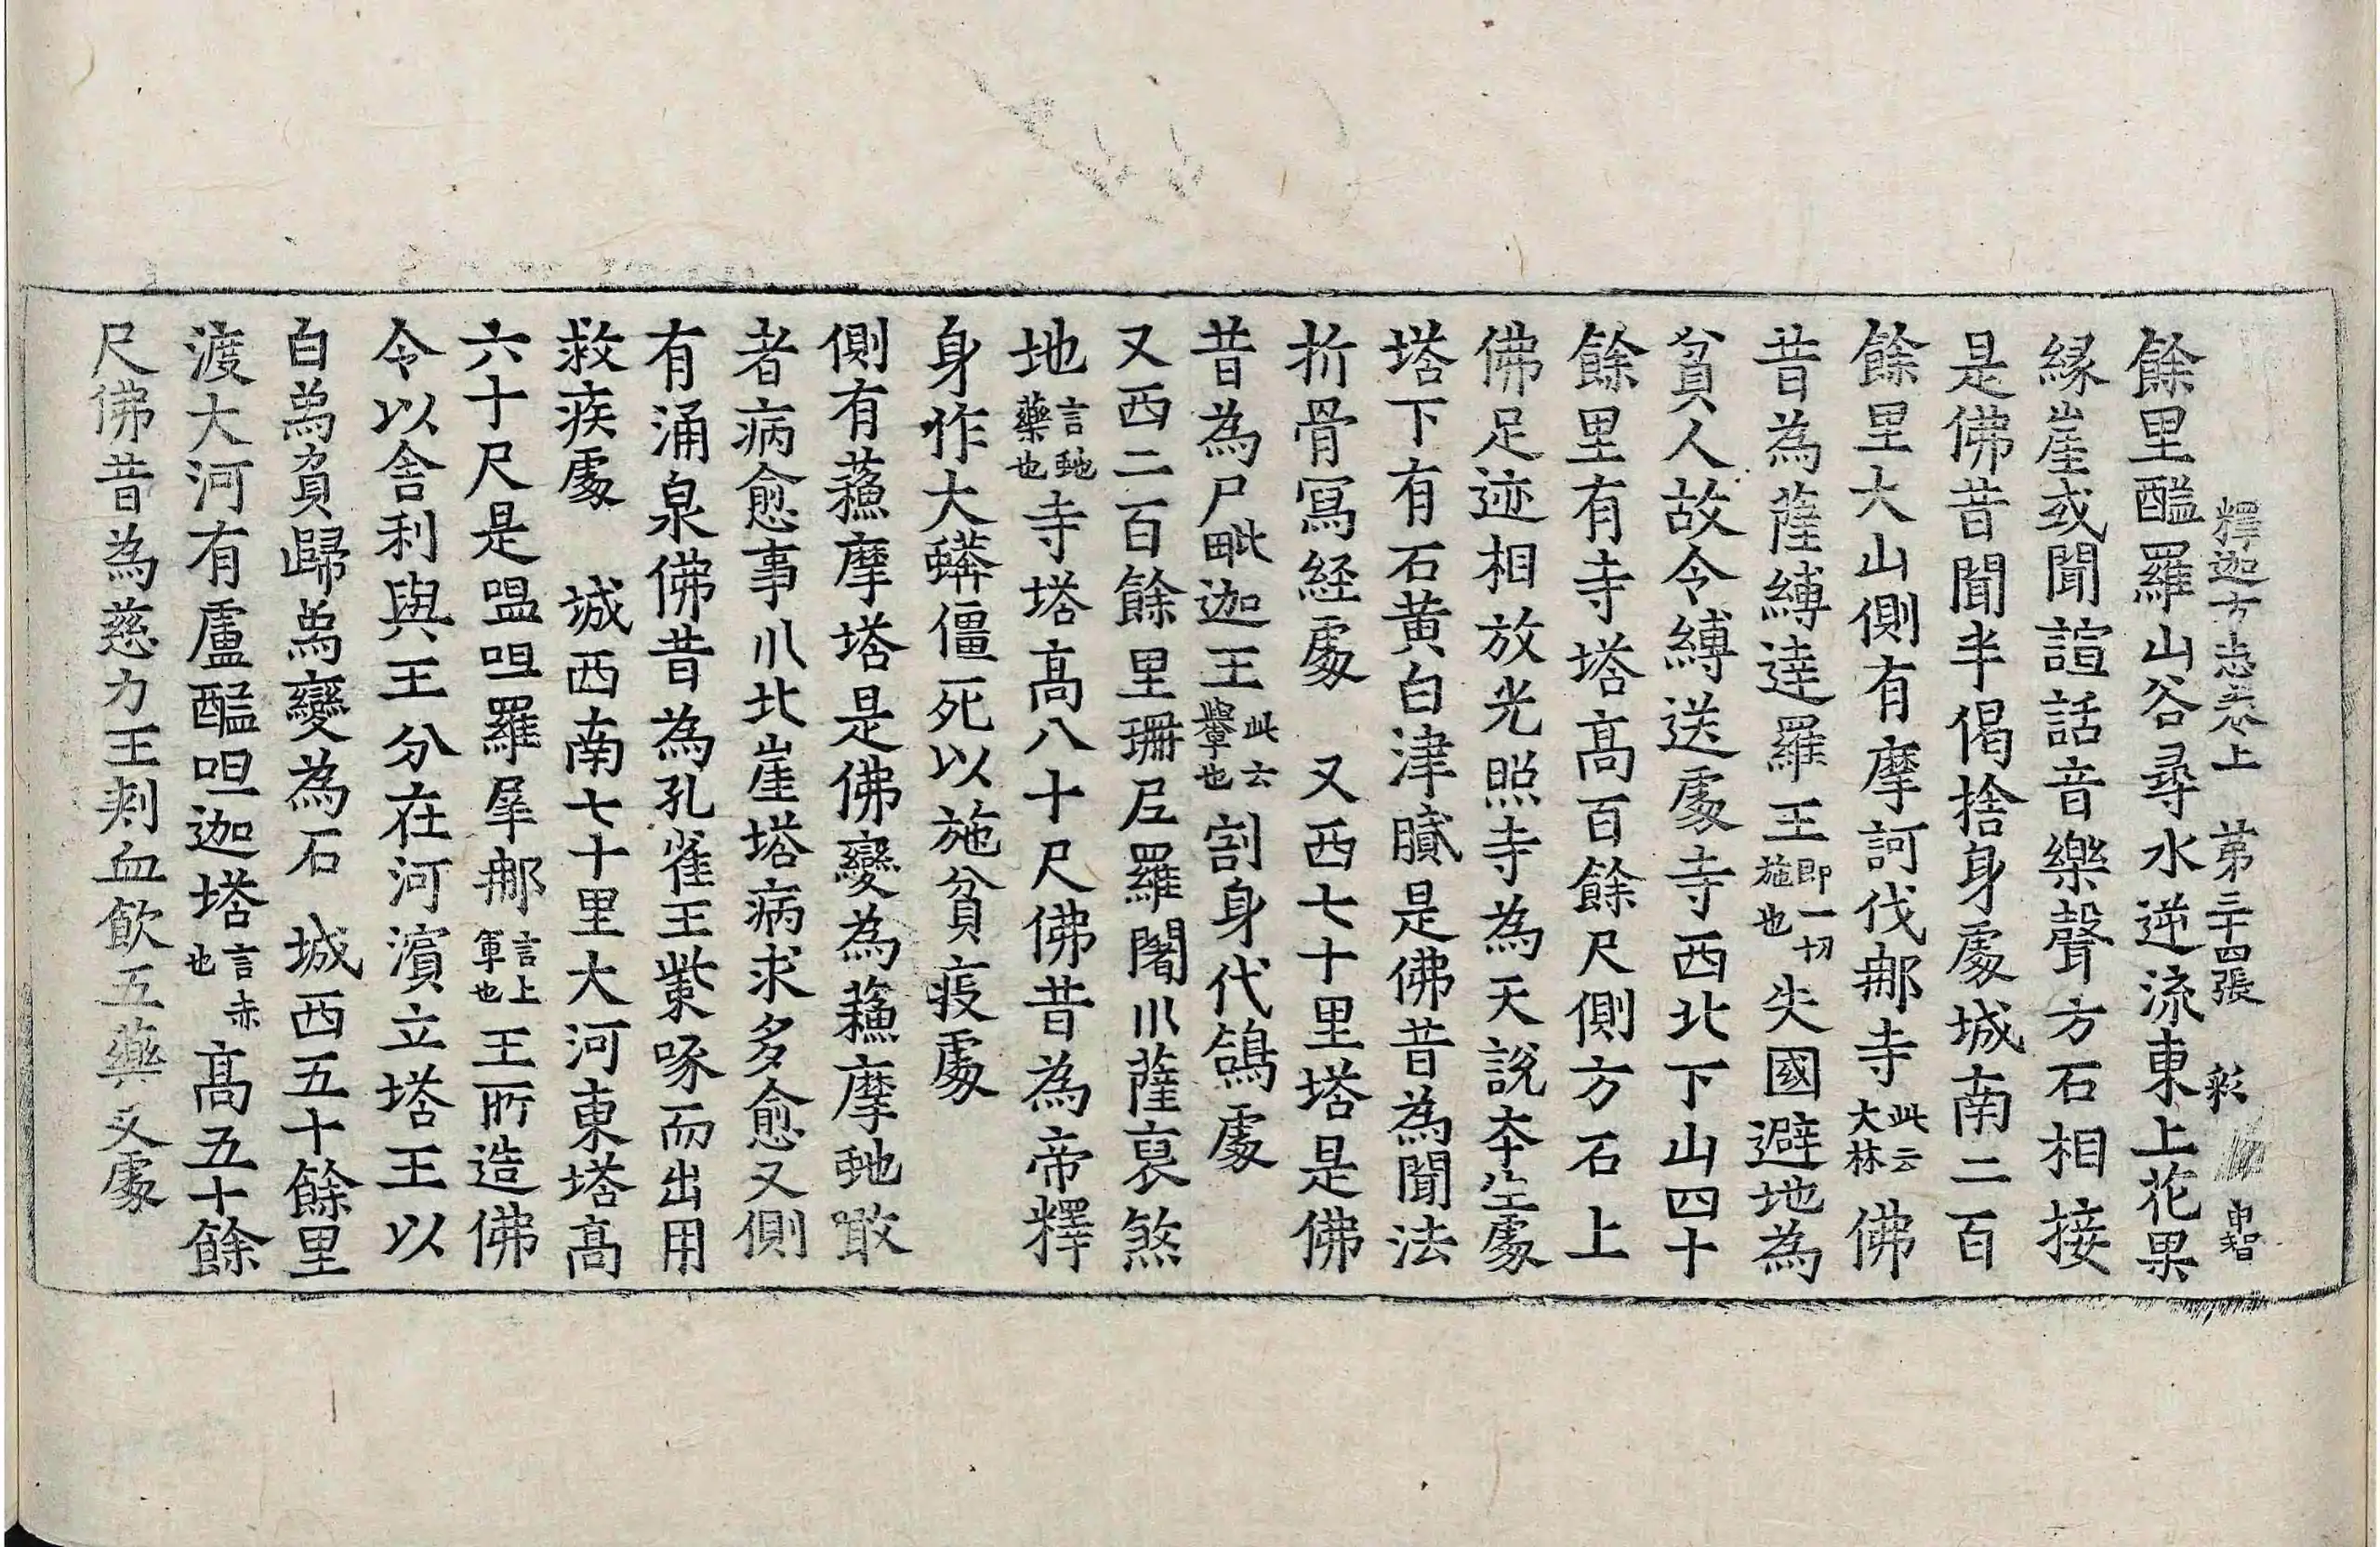 釋迦方志卷上 第三十四張 彩 申智
餘里醯羅山谷尋水逆流東上花果
緣崖或聞諠話音樂聲方石相接
是佛昔聞半偈捨身處城南二百
餘里大山側有摩訶伐那寺此云大林佛
昔為薩縛達羅王即一切施也失國避地為
貧人故令縛送處寺西北下山四十
餘里有寺塔高百餘尺側方石上
佛足迹相放光照寺為天說本生處
塔下有石黃白津膩是佛昔為聞法
折骨冩経處 又西七十里塔是佛
昔為尸毗迦王此云與也割身代鴿處
又西二百餘里珊尼羅闍川薩裒煞
地言虵藥也寺塔高八十尺佛昔為帝釋
身作大蟒僵死以施貧疫處
側有蘓摩塔是佛變為蘓摩虵噉
者病愈事川北崖塔病求多愈又側
有涌泉佛昔為孔雀王紫啄而出用
救疾處 城西南七十里大河東塔高
六十尺是嗢呾羅犀那言上軍也王所造佛
令以舍利與王分在河濵立塔王以
白為負歸為變為石 城西五十餘里
渡大河有盧醯呾迦塔言赤也高五十餘
尺佛昔為慈力王刺血飲五藥叉處